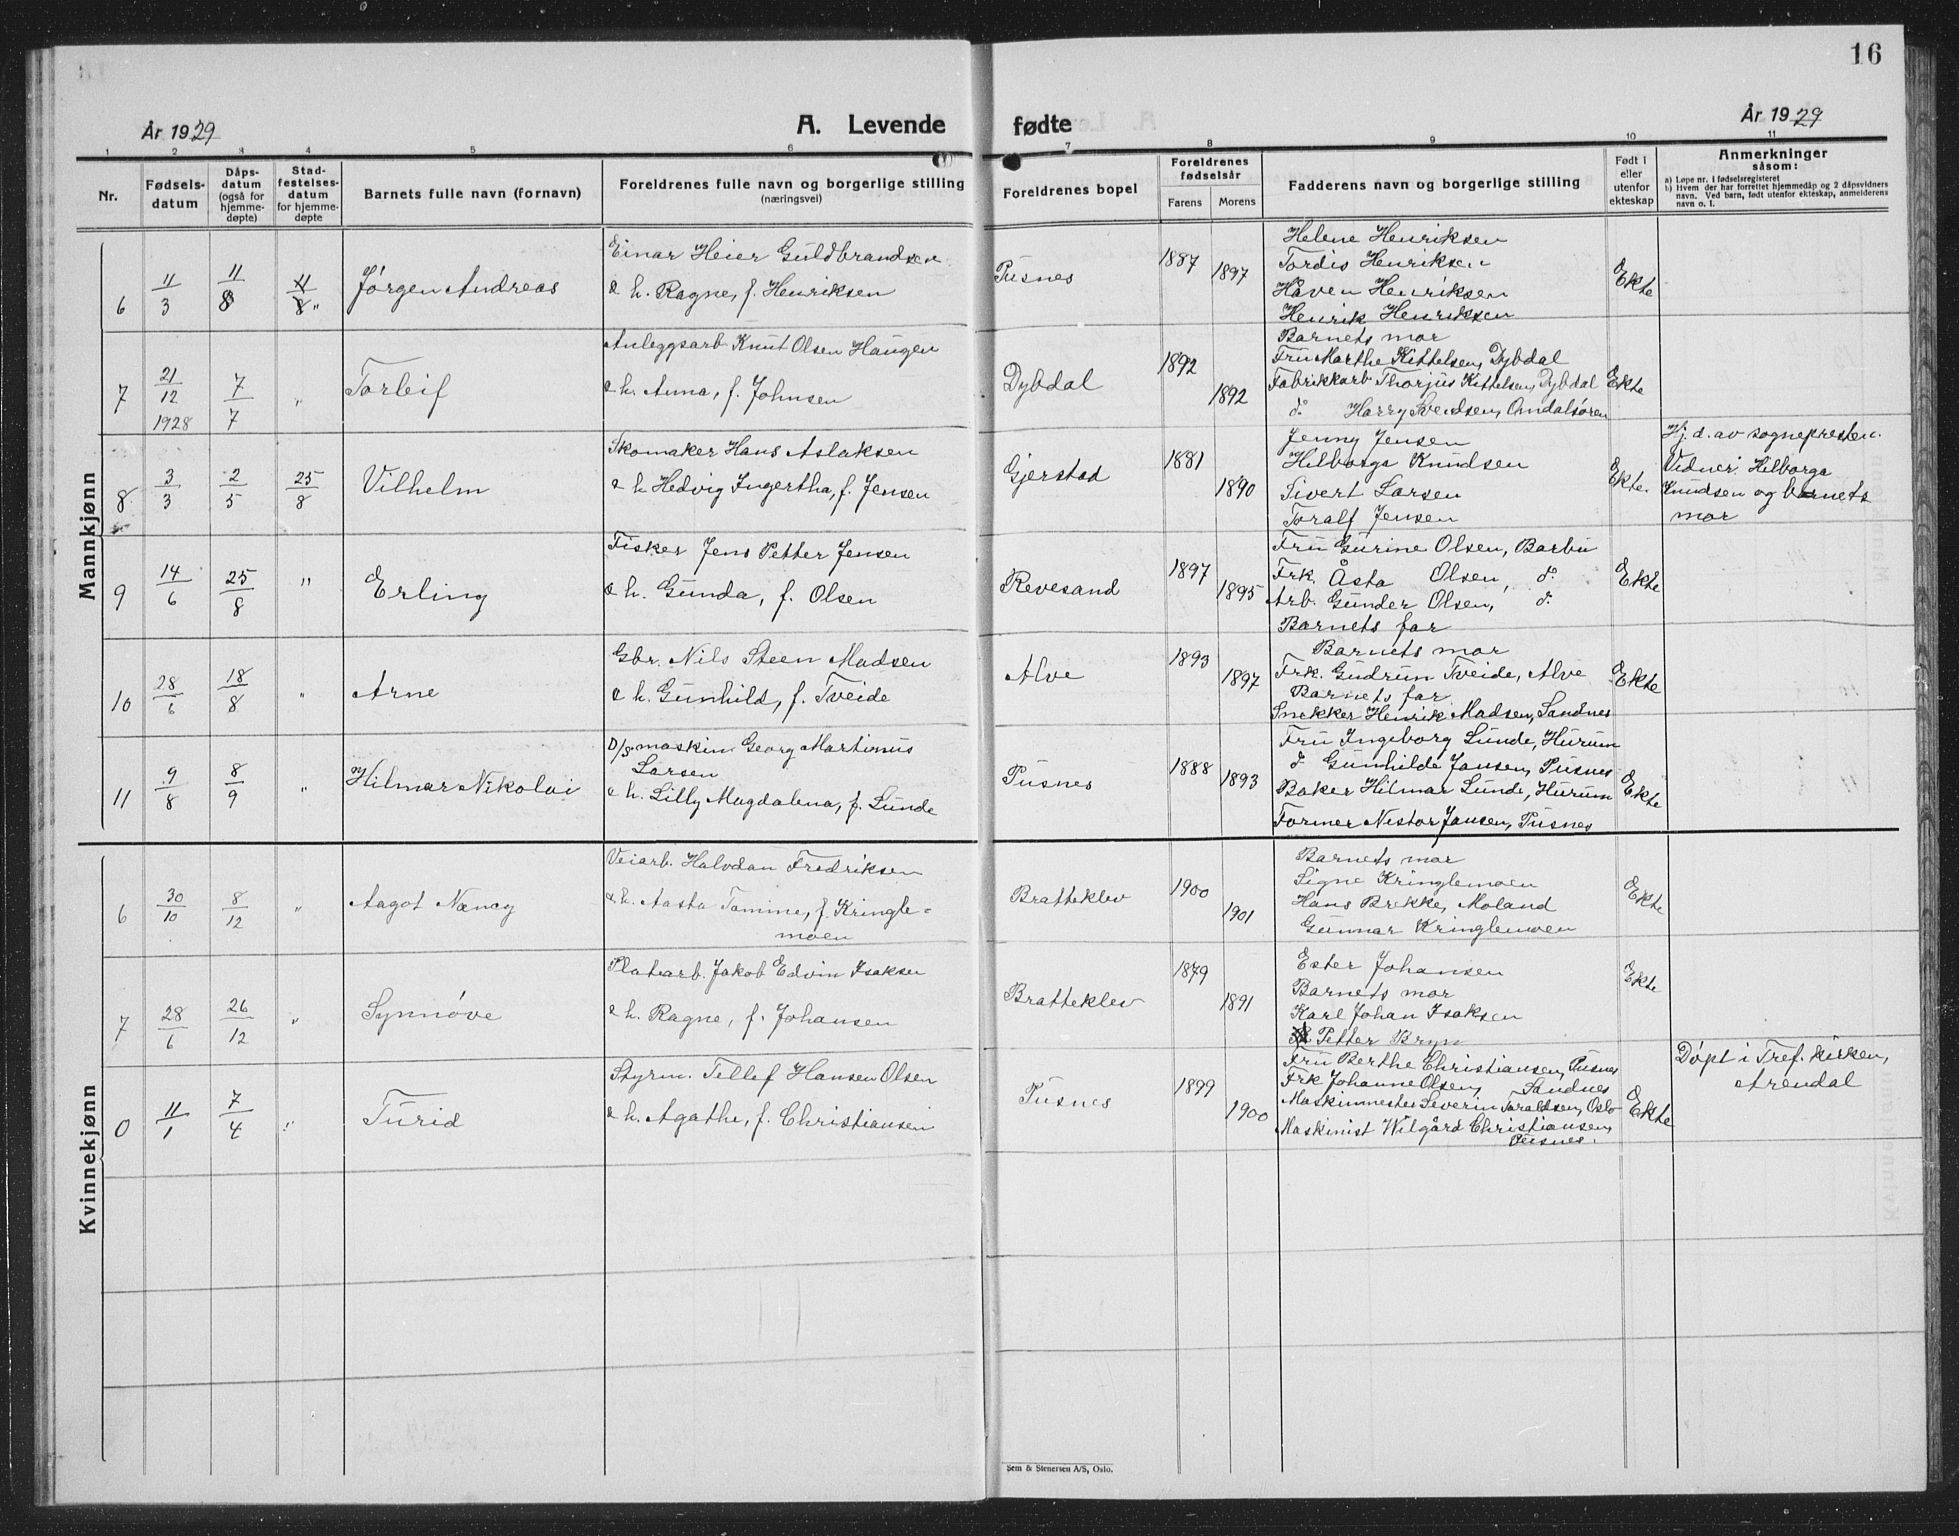 16
År 1929
A. Levende fødte
År 1929
1 2 3 4 5 6 7 8 9 10 11
Nr.
Fødsels-
datum
Dåps-
datum
(også for
hjemme-
døpte)
Stad-
festelses-
datum
for hjemme-
døpte
Barnets fulle navn (fornavn)
Foreldrenes fulle navn og borgerlige stilling
(næringsvei)
Foreldrenes bopel
Foreldrenes
fødselsår
Farens
Morens
Fadderens navn og borgerlige stilling
Født i
eller
utenfor
ekteskap
Anmerkninger
såsom:
a) Løpe nr. i fødselsregisteret
b) Hvem der har forrettet hjemmedåp og 2 dåpsvidners
navn. Ved barn, født utenfor ekteskap, anmelderens
navn o. l.
Mannkjønn
6 11/3 11/8 11/8 " Jørgen Andreas
Einar Heier Guldbrandsen
& h. Ragne, f. Henriksen
Pusnes 1887 1897
Helene Henriksen
Tordis Henriksen
Håven Henriksen
Henrik Henriksen
Ekte
7 21/12 1928 7/7 " Torleif
Anleggsarb Knut Olsen Haugen
& h. Anna, f. Johnsen
Dybdal 1892 1892
Barnets mor
Fru Marthe Kittelsen, Dybdal
Fabrikkarb Thorjus Kittelsen, Dybdal
do Harry Svendsen, Omdalsøren
Ekte
8 3/3 2/5 25/8 Vilhelm
Skomaker Hans Aslaksen
& h. Hedvig Ingertha, f. Jensen
Gjerstad 1881 1890
Jenny Jensen
Hilborga Knudsen
Sivert Larsen
Toralf Jensen
Ekte.
Hj. d. av sognepresten.
Vidner: Hilborga
Knudsen og barnets
mor
9 14/6 25/8 " Erling
Fisker Jens Petter Jensen
& h. Gunda, f. Olsen
Revesand 1897 1895
Fru Gurine Olsen, Barbu
Frk. Åsta Olsen, do
Arb. Gunder Olsen, do
Barnets far
Ekte
10 28/6 18/8 " Arne
Gbr. Nils Steen Madsen
& h. Gunhild, f. Tveide
Alve 1893 1897
Barnets mor
Frk. Gudrun Tveide, Alve
Barnets far
Snekker Henrik Madsen, Sandnes
Ekte
11 9/8 8/9 " Hilmar Nikolai
D/S maskin. Georg Martinus
Larsen
& h. Lilly Magdalena, f. Lunde
Pusnes 1888 1893
Fru Ingeborg Lunde, Hurum
do Gunhilde Jansen, Pusnes
Baker Hilmar Lunde, Hurum
Former Nestor Jansen, Pusnes
Ekte
Kvinnekjønn
6 30/10 8/12 " Aagot Nancy
Veiarb. Halvdan Fredriksen
& h. Aasta Tomine, f. Kringle-
moen
Bratteklev 1900 1901
Barnets mor
Signe Kringlemoen
Hans Brekke, Moland
Gunnar Kringlemoen
Ekte
7 28/6 26/12 " Synnøve
Platearb. Jakob Edvin Isaksen
& h. Ragne, f. Johansen
Bratteklev 1879 1891
Ester Johansen
Barnets mor
Karl Johan Isaksen
Petter Bryn
Ekte
0 11/1 7/4 " Turid
Styrm. Tellef Hansen Olsen
& h. Agathe, f. Christiansen
Pusnes 1899 1900
Fru Berthe Christiansen, Pusnes
Frk Johanne Olsen, Sandnes
Maskinmester Severin Taraldsen, Oslo
Maskinist Wilgård Christiansen,
Pusnes.
Ekte
Døpt i Tref. kirken,
Arendal
Sem & Stenersen A/S, Oslo.